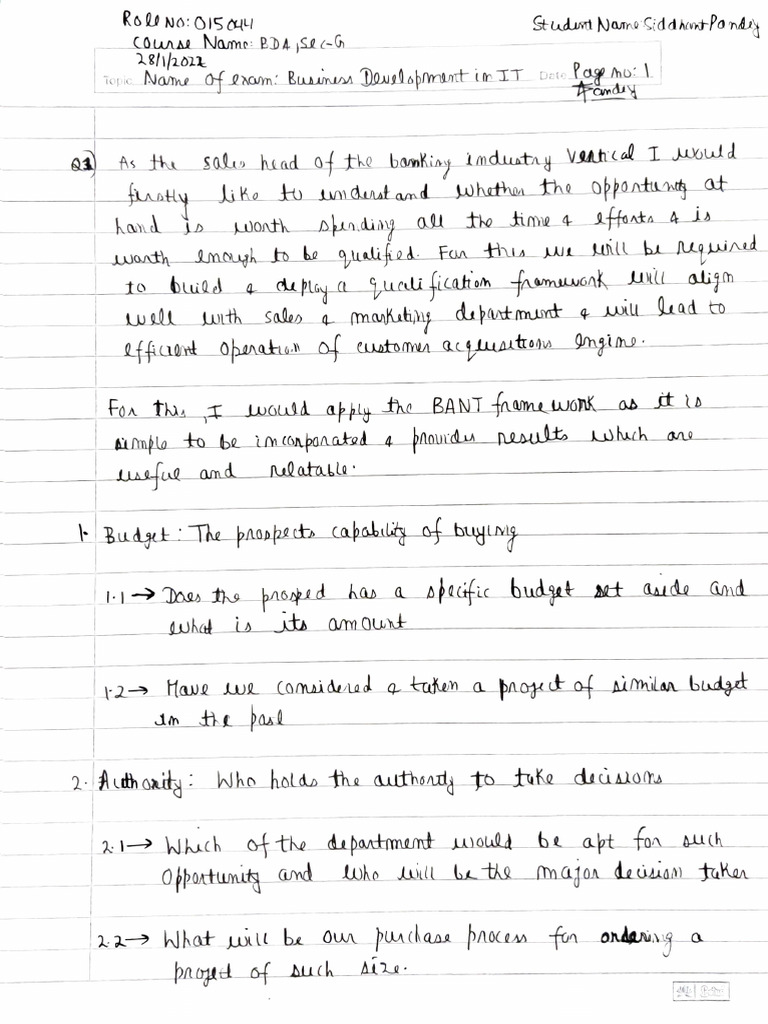 Roll No: 015044
Student Name: Siddhant Pandey
Course Name: BDA, Sec-G
28/1/2022
Topic Name Of exam: Business Development in IT Date Page no: 1
Pandey
Q1) As the sales head of the banking industry vertical I would
firstly like to understand whether the opportunity at
hand is worth spending all the time & efforts & is
worth enough to be qualified. For this we will be required
to build & deploy a qualification framework will align
well with sales & marketing department & will lead to
efficient operation of customer acquisitions engine.
For this, I would apply the BANT framework as it is
simple to be incorporated & provides results which are
useful and relatable.
1. Budget: The prospects capability of buying
1.1 → Does the prosped has a specific budget set aside and
what is its amount
1.2 → Have we considered & taken a project of similar budget
in the past
2. Authority: Who holds the authority to take decisions
2.1 → Which of the department would be apt for such
opportunity and who will be the major decision taker
2.2 → What will be our purchase process for ordering a
project of such size.